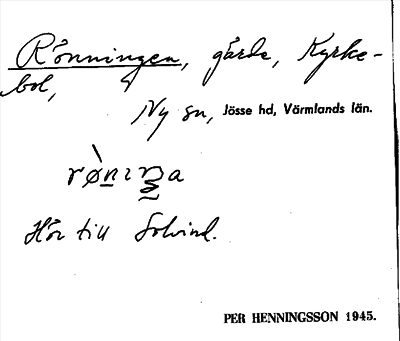 Rönningen, gårde, Kyrke-
bol,
Ny sn, Jösse hd, Värmlands län.
Hör till Solvind.
PER HENNINGSSON 1945.